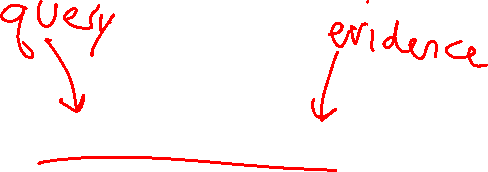 query evidence